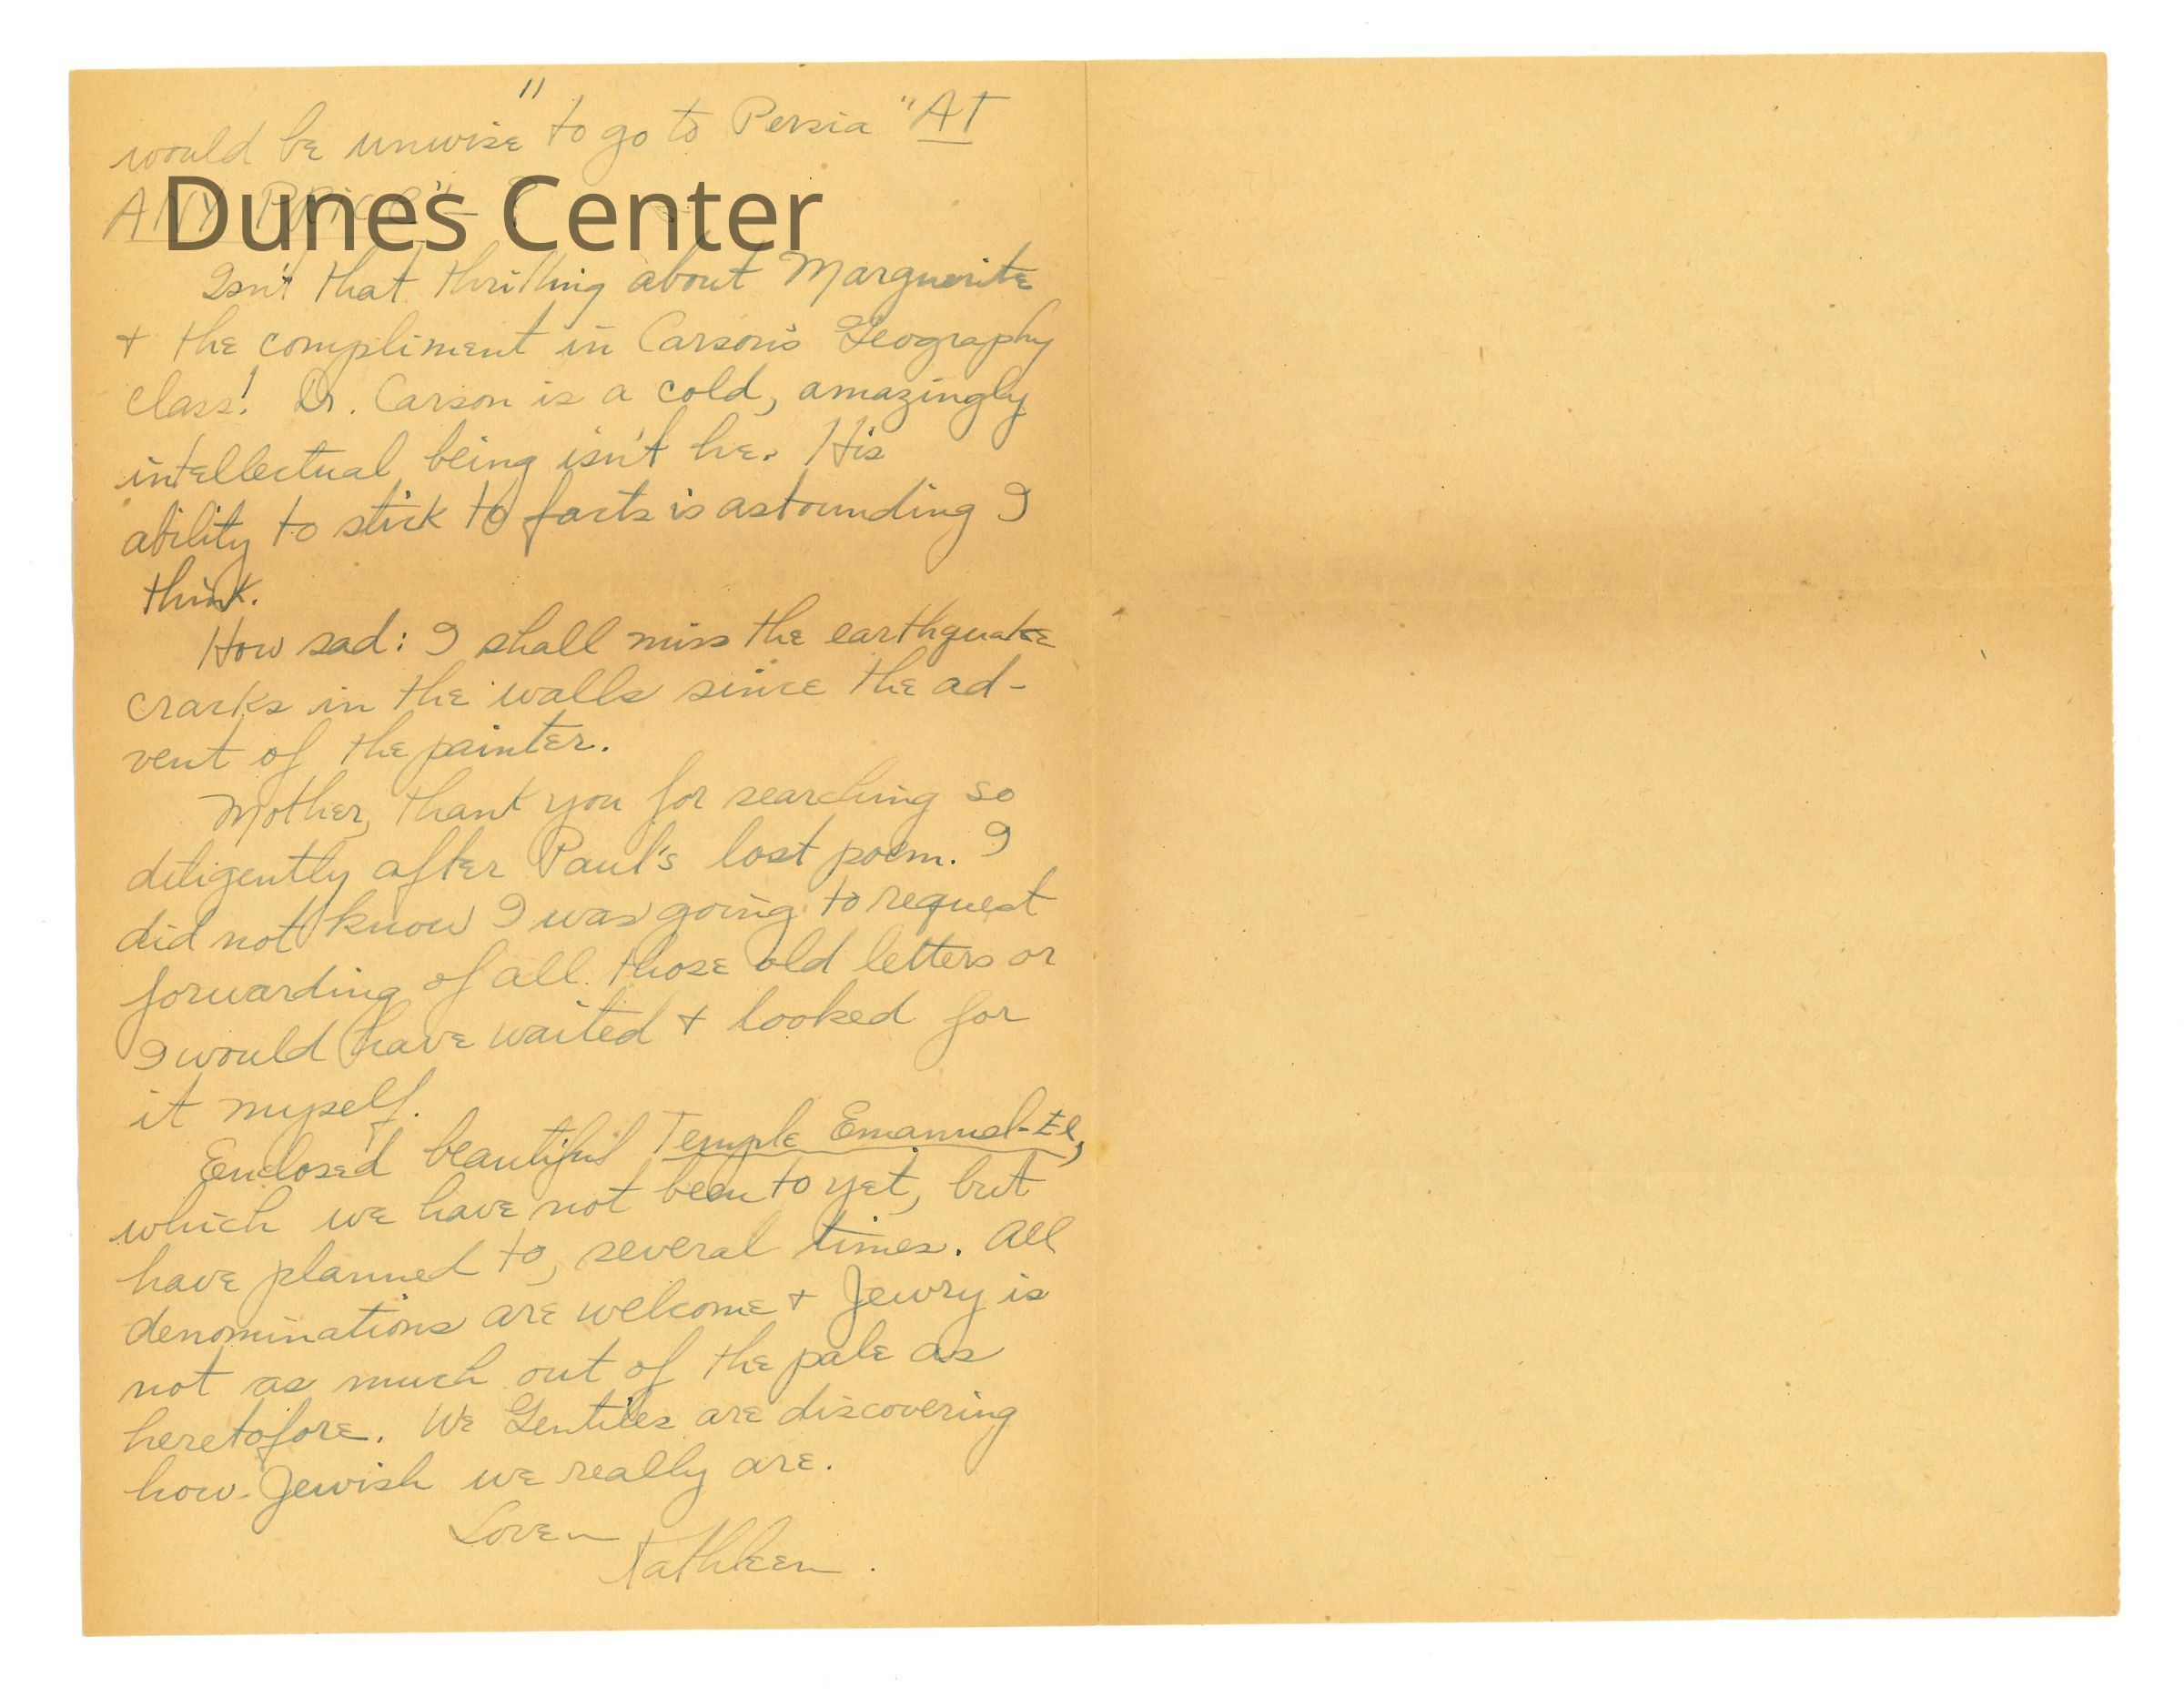 would be unwise" to go to Persia "AT
ANY PRICE" - ?
Dunes Center
Isn't that thrilling about Marguerite
+ the compliment in Carson's Geography
class! Dr. Carson is a cold, amazingly
intellectual being isn't he. His
ability to stick to facts is astounding I
think.
How sad: I shall miss the earthquake
cracks in the walls since the ad-
vent of the painter.
Mother, thank you for searching so
diligently after Paul's lost poem. I
did not know I was going to request
forwarding of all those old letters or
I would have waited + looked for
it myself.
Enclosed beautiful Temple Emanuel-El,
which we have not been to yet, but
have planned to, several times. All
denominations are welcome + Jewry is
not as much out of the pale as
heretofore. We Gentiles are discovering
how Jewish we really are.
Love
Kathleen.